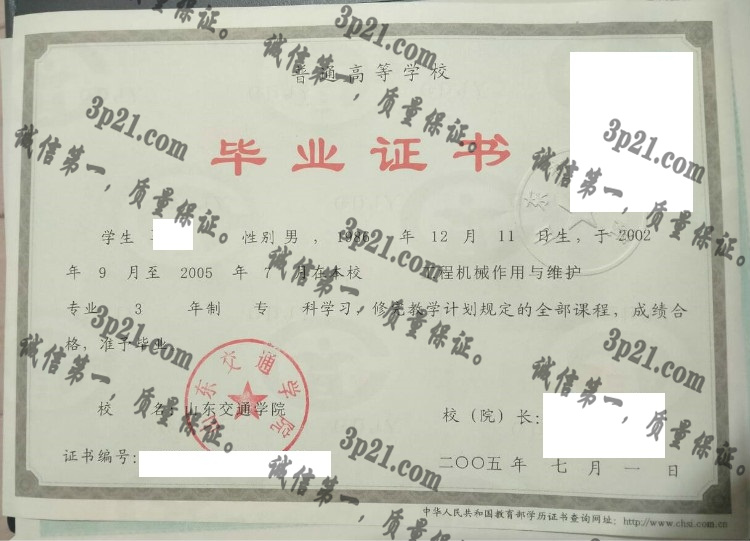 普通高等学校
毕业证书
学生 性别 男 , 1986 年 12 月 11 日生, 于 2002
年 9 月至 2005 年 7 月在本校 工程机械作用与维护
专业 3 年制 专 科学习, 修完教学计划规定的全部课程, 成绩合
格, 准予毕业
山东交通学院
校 名: 山东交通学院
校(院)长:
证书编号:
二〇〇五年 七月 一日
中华人民共和国教育部学历证书查询网址: http://www.chsi.com.cn
3p21.com
诚信第一,质量保证。
3p21.com
诚信第一,质量保证。
3p21.com
诚信第一,质量保证。
3p21.com
诚信第一,质量保证。
3p21.com
诚信第一,质量保证。
3p21.com
诚信第一,质量保证。
3p21.com
诚信第一,质量保证。
3p21.com
诚信第一,质量保证。